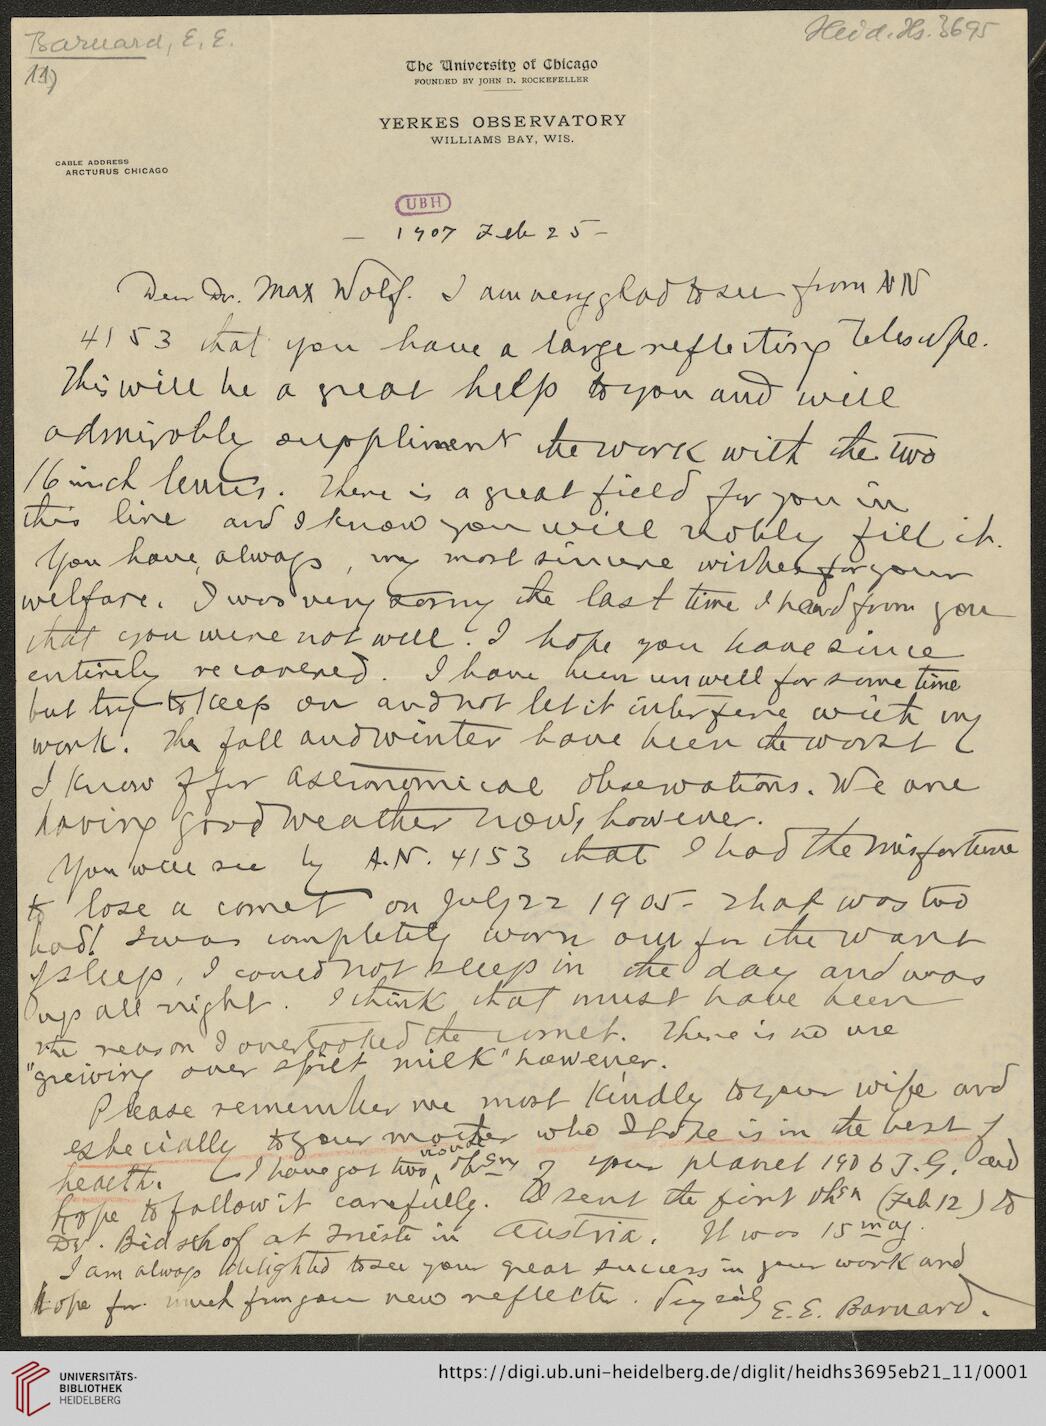 Barnard, E. E.
Heid. Hs. 3695
11)
The University of Chicago
FOUNDED BY JOHN D. ROCKEFELLER
YERKES OBSERVATORY
WILLIAMS BAY, WIS.
CABLE ADDRESS
ARCTURUS CHICAGO
UBH
- 1907 Feb 25 -
Dear Dr. Max Wolf. I am very glad to see from AN
4153 that you have a large reflecting telescope.
This will be a great help to you and will
admirably suppliment the work with the two
16 inch lenses. There is a great field for you in
this line and I know you will nobly fill it.
You have, always, my most sincere wishes for your
welfare. I was very sorry the last time I heard from you
that you were not well. I hope you have since
entirely recovered. I have been unwell for some time
but try to keep on and not let it interfere with my
work. The fall and winter have been the worst
I know of for astronomical observations. We are
having good weather now, however.
You will see by A.N. 4153 that I had the misfortune
to lose a comet on July 22 1905 - that was too
bad! I was completely worn out for the want
of sleep, I could not sleep in the day and was
up all night. I think that must have been
the reason I overlooked the comet. There is no use
"greiving over spilt milk" however.
Please remember me most kindly to your wife and
especially to your mother who I hope is in the best of
health. I have got two obsns of your planet 1906 T.G. and
hope to follow it carefully. I sent the first obsn (Feb 12) to
Dr. Bidschof at Trieste in Austria. It was 15 mag.
I am always delighted to see your great success in your work and
hope for much from your new reflector. E. E. Barnard.
UNIVERSITÄTS-
BIBLIOTHEK
HEIDELBERG
https://digi.ub.uni-heidelberg.de/diglit/heidhs3695eb21_11/0001